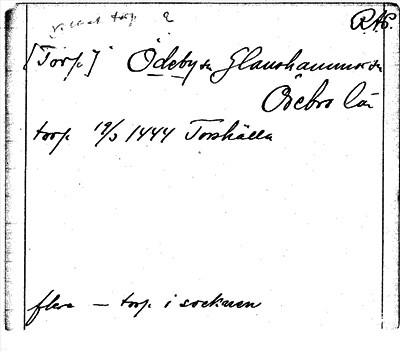 vilket torp ?
RAP.
[Torp] Ödeby sn Glanshammars hd
Örebro län
torp 19/3 1444 Torshälla
flera – torp i socknen